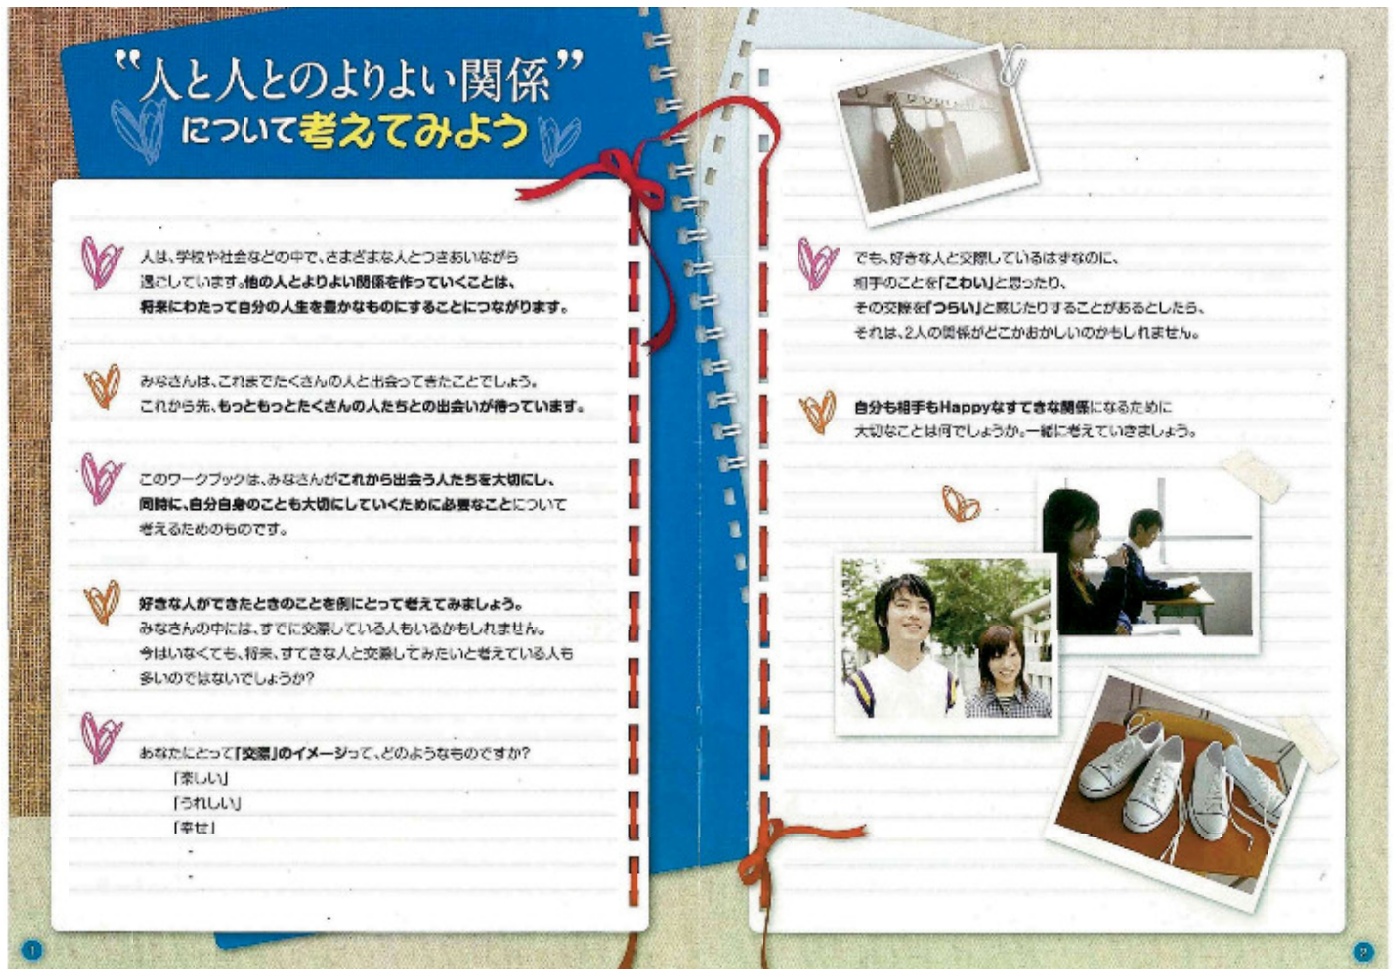 “人と人とのよりよい関係”
について考えてみよう
人は、学校や社会などの中で、さまざまな人とつきあいながら
過ごしています。他の人とよりよい関係を作っていくことは、
将来にわたって自分の人生を豊かなものにすることにつながります。
みなさんは、これまでたくさんの人と出会ってきたことでしょう。
これから先、もっともっとたくさんの人たちとの出会いが待っています。
このワークブックは、みなさんがこれから出会う人たちを大切にし、
同時に、自分自身のことも大切にしていくために必要なことについて
考えるためのものです。
好きな人ができたときのことを例にとって考えてみましょう。
みなさんの中には、すでに交際している人もいるかもしれません。
今はいなくても、将来、すてきな人と交際してみたいと考えている人も
多いのではないでしょうか?
あなたにとって「交際」のイメージって、どのようなものですか?
「楽しい」
「うれしい」
「幸せ」
・
・
1
でも、好きな人と交際しているはずなのに、
相手のことを「こわい」と思ったり、
その交際を「つらい」と感じたりすることがあるとしたら、
それは、2人の関係がどこかおかしいのかもしれません。
自分も相手もHappyなすてきな関係になるために
大切なことは何でしょうか。一緒に考えていきましょう。
2